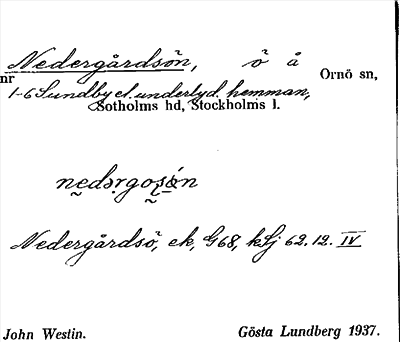 Nedergårdsön, ö å Ornö sn,
nr 1-6 Sundby el. underlyd. hemman,
Sotholms hd, Stockholms l.
Nedergårdsö, ek, G68, kLj 62.12. IV
John Westin. Gösta Lundberg 1937.